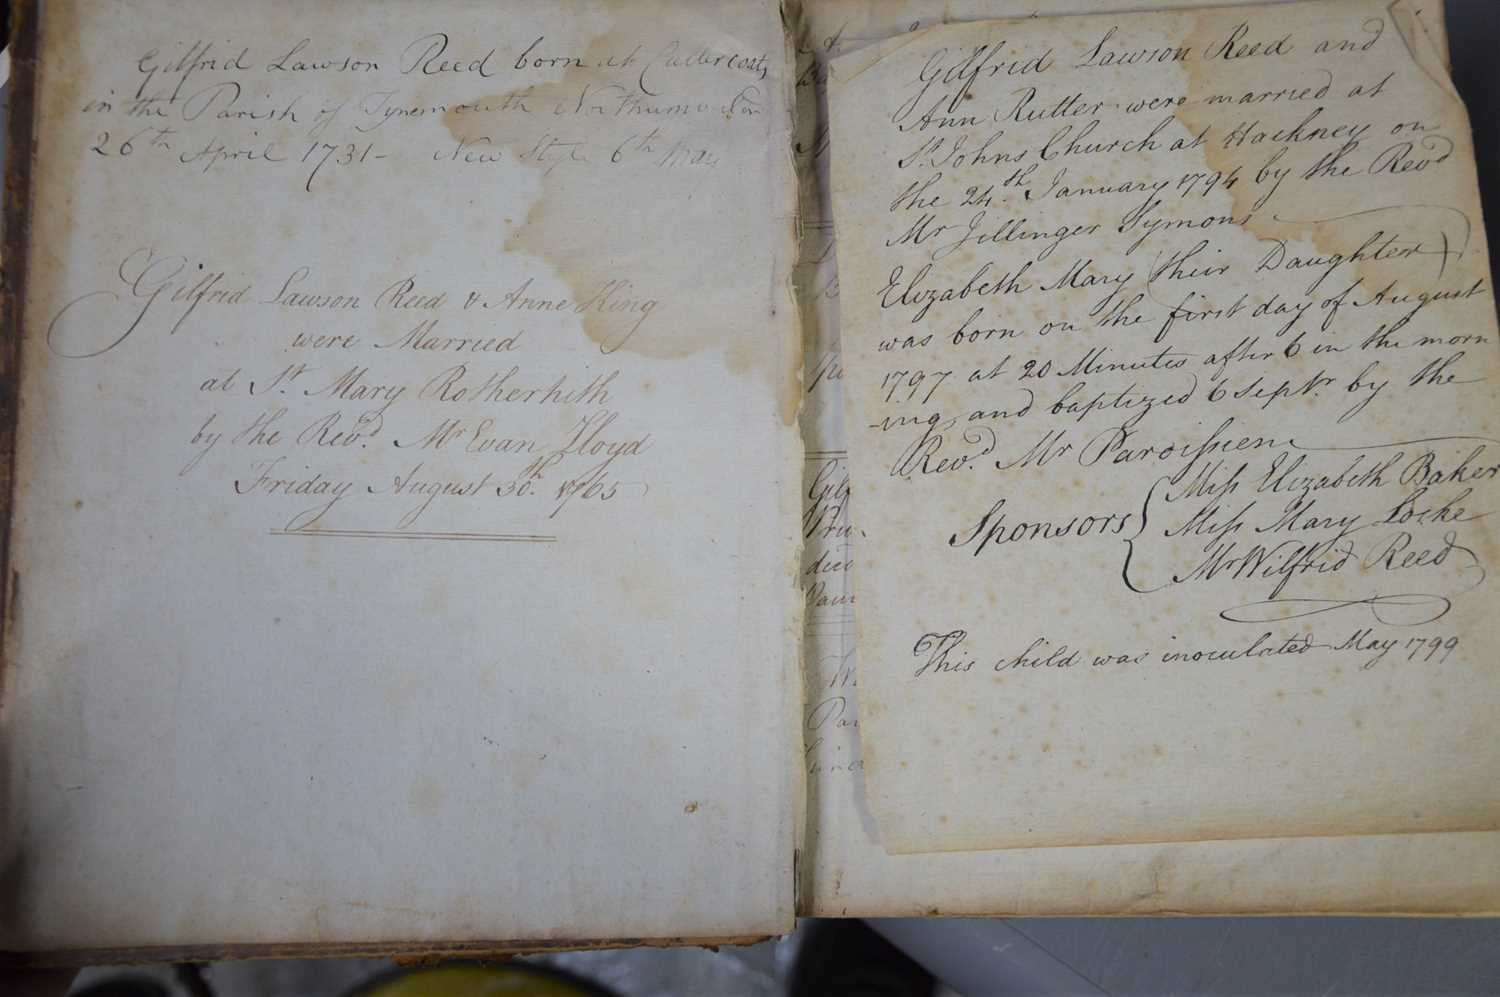 Gilfrid Lawson Reed born at Cullercoats
in the Parish of Tynemouth
26th April 1731 - New Style 6th May
Gilfrid Lawson Reed & Anne King
were Married
at St. Mary Rotherhith
by the Revd. Mr Evan Lloyd
Friday August 30th. 1765
Gilfrid Lawson Reed and
Ann Rutter were married at
St. Johns Church at Hackney on
the 24th. January 1794 by the Revd
Mr Jillinger Symons
Elizabeth Mary their Daughter
was born on the first day of August
1797 at 20 Minutes after 6 in the morn
-ing, and baptized 6 Septr. by the
Revd. Mr Paroissien
Sponsors { Miss Elizabeth Baker
Miss Mary Locke
Mr Wilfrid Reed
This child was inoculated May 1799